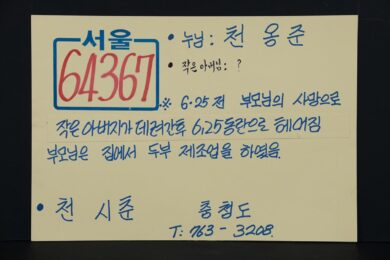 서울
64367
• 누님: 천 옹준
• 작은아버님: ?
※ 6.25전 부모님의 사망으로
작은아버지가 데려간후 6.25동란으로 헤어짐
부모님은 집에서 두부 제조업을 하였음.
• 천 시준 충청도
T: 763-3208.